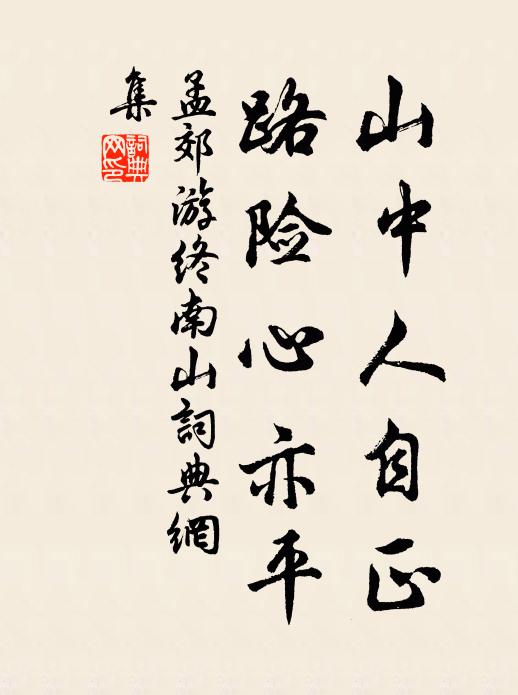 山中人自正
路险心亦平
孟郊游终南山詞典網
集
詞典
网印